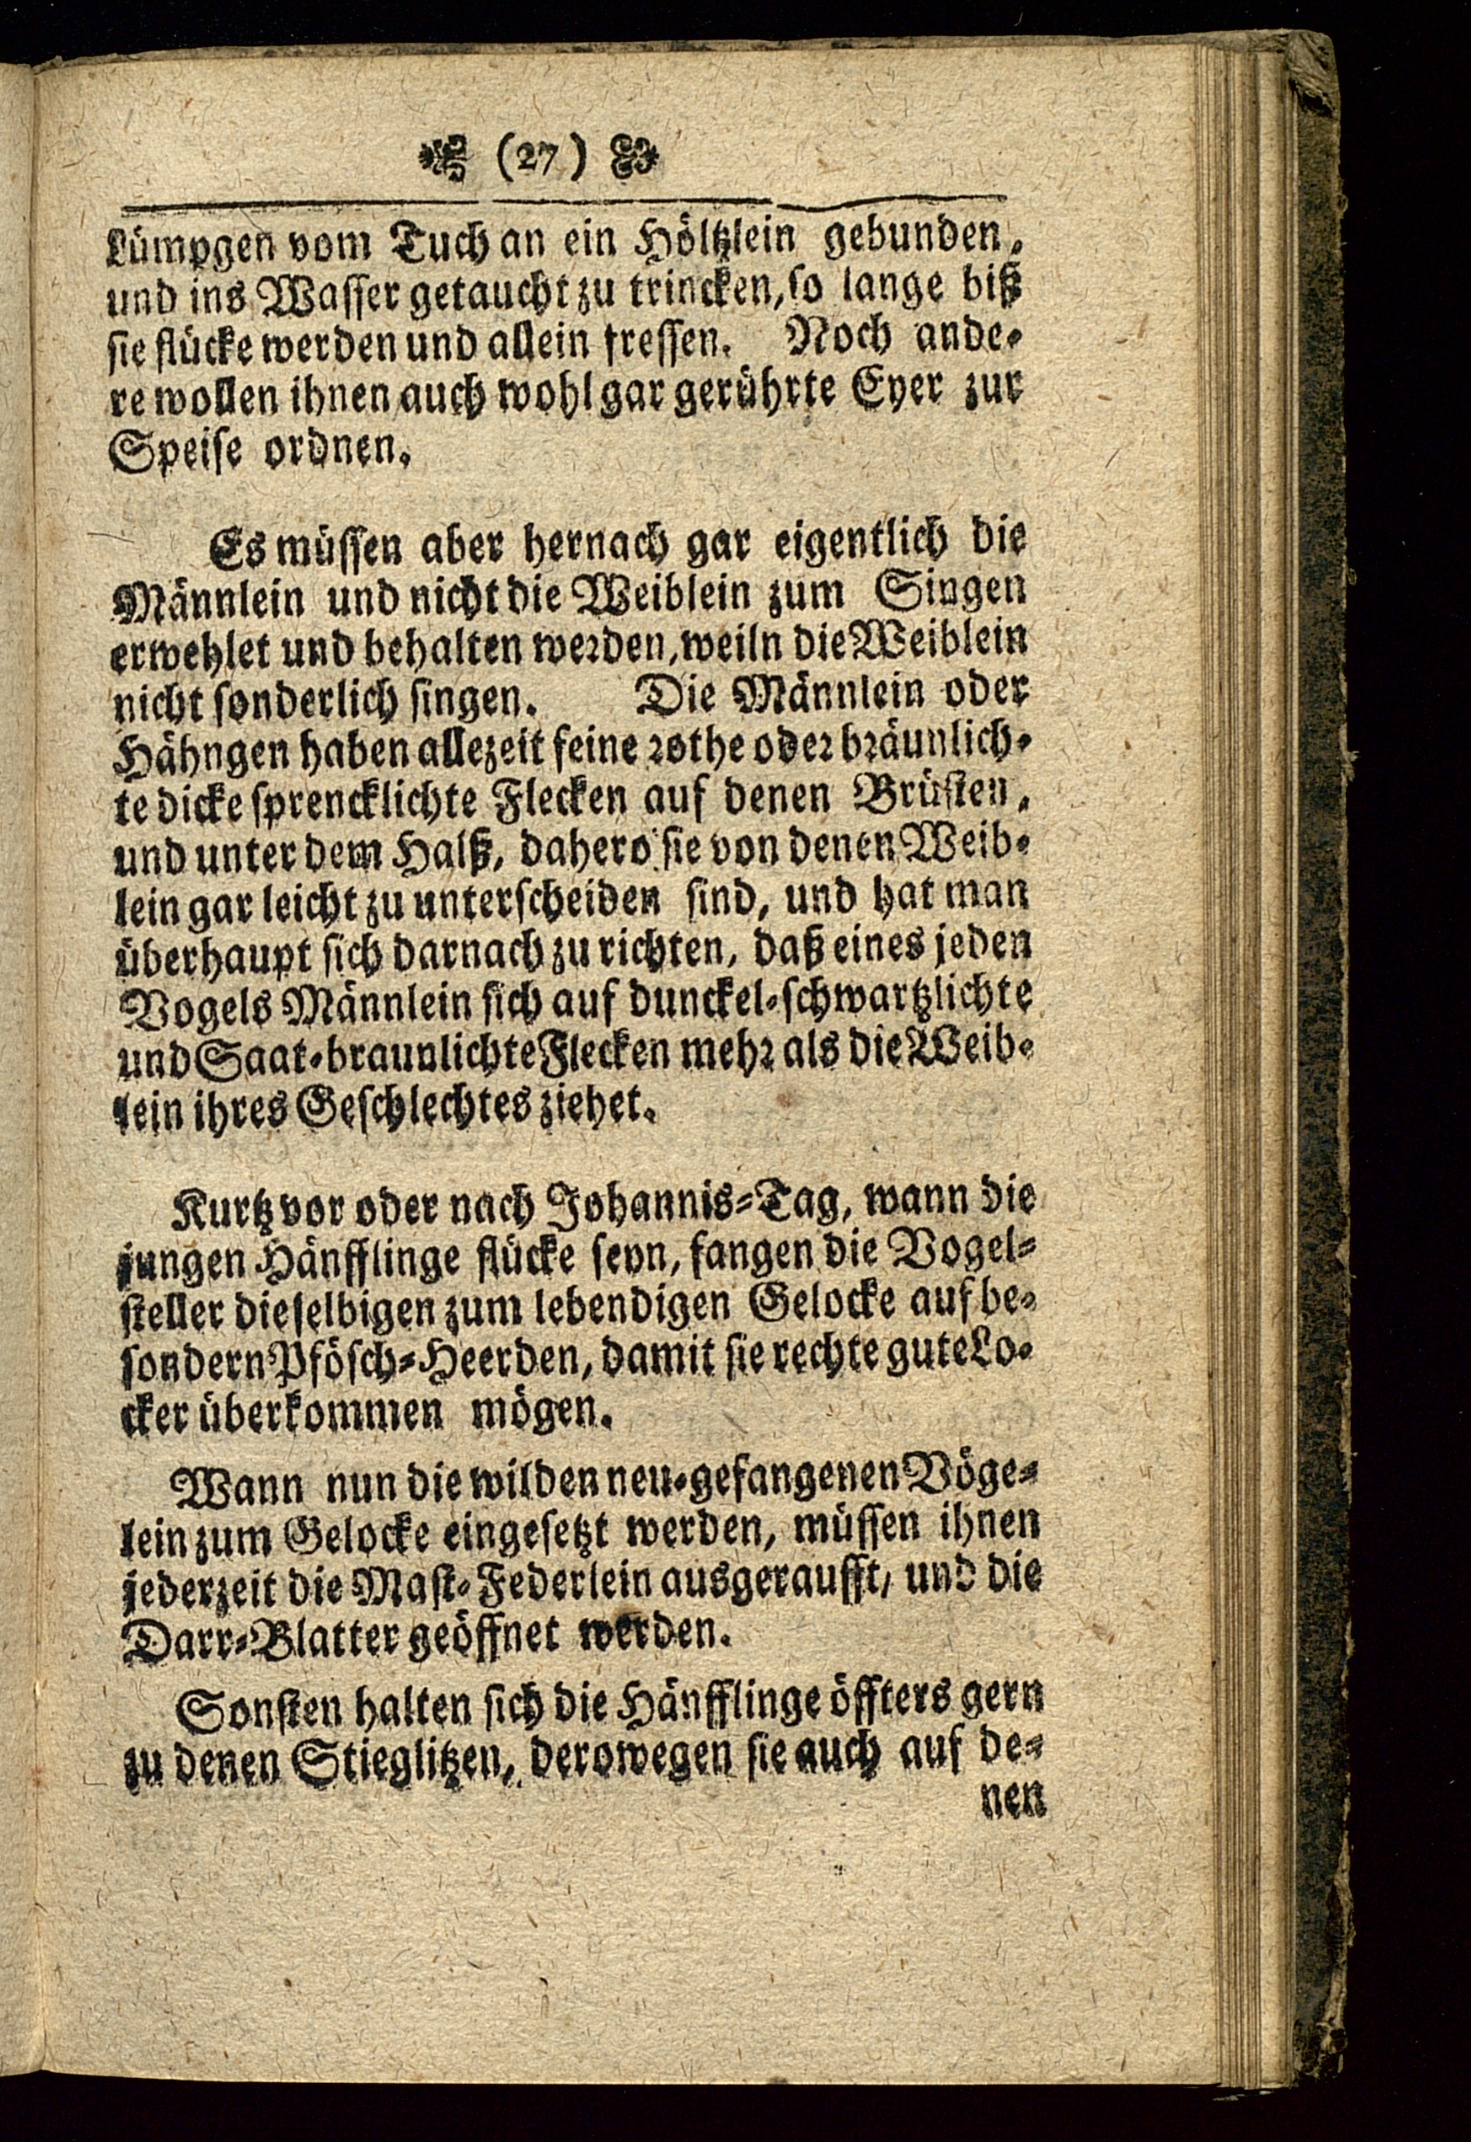 (27)
Lümpgen vom Tuch an ein Höltzlein gebunden,
und ins Wasser getaucht zu trincken, so lange biß
sie flücke werden und allein fressen. Noch ande-
re wollen ihnen auch wohl gar gerührte Eyer zur
Speise ordnen.
Es müssen aber hernach gar eigentlich die
Männlein und nicht die Weiblein zum Singen
erwehlet und behalten werden, weiln die Weiblein
nicht sonderlich singen. Die Männlein oder
Hähngen haben allezeit feine rothe oder bräunlich-
te dicke sprencklichte Flecken auf denen Brüsten,
und unter dem Halß, dahero sie von denen Weib-
lein gar leicht zu unterscheiden sind, und hat man
überhaupt sich darnach zu richten, daß eines jeden
Vogels Männlein sich auf dunckel-schwartzlichte
und Saat-braunlichte Flecken mehr als die Weib-
lein ihres Geschlechtes ziehet.
Kurtz vor oder nach Johannis-Tag, wann die
jungen Hänfflinge flücke seyn, fangen die Vogel-
steller dieselbigen zum lebendigen Gelocke auf be-
sondern Pfösch-Heerden, damit sie rechte gute Lo-
cker überkommen mögen.
Wann nun die wilden neu-gefangenen Vöge-
lein zum Gelocke eingesetzt werden, müssen ihnen
jederzeit die Mast-Federlein ausgeraufft, und die
Darr-Blatter geöffnet werden.
Sonsten halten sich die Hänfflinge öffters gern
zu denen Stieglitzen, derowegen sie auch auf de-
nen